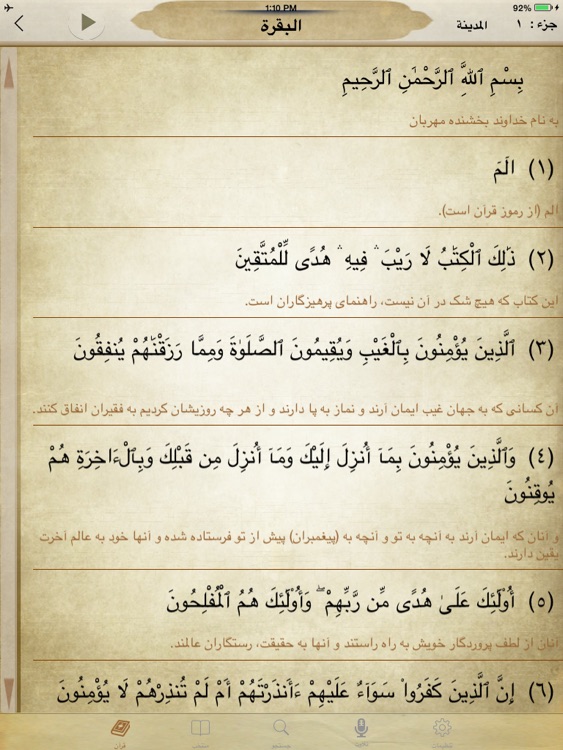 1:10 PM
92%
البقرة
المدينة
جزء: ١
بِسْمِ ٱللَّهِ ٱلرَّحْمَٰنِ ٱلرَّحِيمِ
به نام خداوند بخشنده مهربان
(١) الٓمٓ
الم (از رموز قرآن است).
(٢) ذَٰلِكَ ٱلْكِتَٰبُ لَا رَيْبَ ۛ فِيهِ ۛ هُدًى لِّلْمُتَّقِينَ
این کتاب که هیچ شک در آن نیست، راهنمای پرهیزگاران است.
(٣) ٱلَّذِينَ يُؤْمِنُونَ بِٱلْغَيْبِ وَيُقِيمُونَ ٱلصَّلَوٰةَ وَمِمَّا رَزَقْنَٰهُمْ يُنفِقُونَ
آن کسانی که به جهان غیب ایمان آرند و نماز به پا دارند و از هر چه روزیشان کردیم به فقیران انفاق کنند.
(٤) وَٱلَّذِينَ يُؤْمِنُونَ بِمَآ أُنزِلَ إِلَيْكَ وَمَآ أُنزِلَ مِن قَبْلِكَ وَبِٱلْءَاخِرَةِ هُمْ
يُوقِنُونَ
و آنان که ایمان آرند به آنچه به تو و آنچه به (پیغمبران) پیش از تو فرستاده شده و آنها خود به عالم آخرت
یقین دارند.
(٥) أُو۟لَٰٓئِكَ عَلَىٰ هُدًى مِّن رَّبِّهِمْ ۖ وَأُو۟لَٰٓئِكَ هُمُ ٱلْمُفْلِحُونَ
آنان از لطف پروردگار خویش به راه راستند و آنها به حقیقت، رستگاران عالمند.
(٦) إِنَّ ٱلَّذِينَ كَفَرُوا۟ سَوَآءٌ عَلَيْهِمْ ءَأَنذَرْتَهُمْ أَمْ لَمْ تُنذِرْهُمْ لَا يُؤْمِنُونَ
قرآن
جستجو
تلاوت
تنظیمات